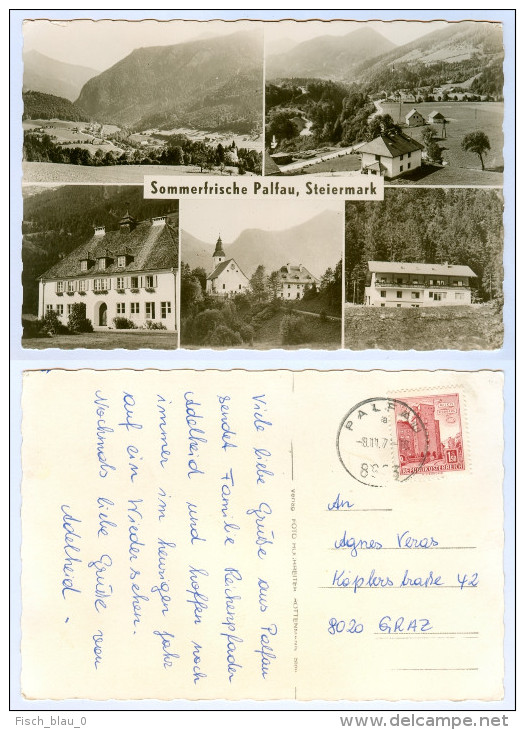 Sommerfrische Palfau, Steiermark
Viele liebe Grüße aus Palfau
sendet Familie Reichenpfader
Adelheid und hoffen noch
immer im heurigen Jahr
auf ein Wiedersehen.
Nochmals liebe Grüße von
Adelheid.
Verlag FOTO
PALFAU
a
REPUBLIK ÖSTERREICH
An
Agnes Veras
Köplers straße 42
8020 GRAZ
Fisch_blau_0
www.delcampe.net